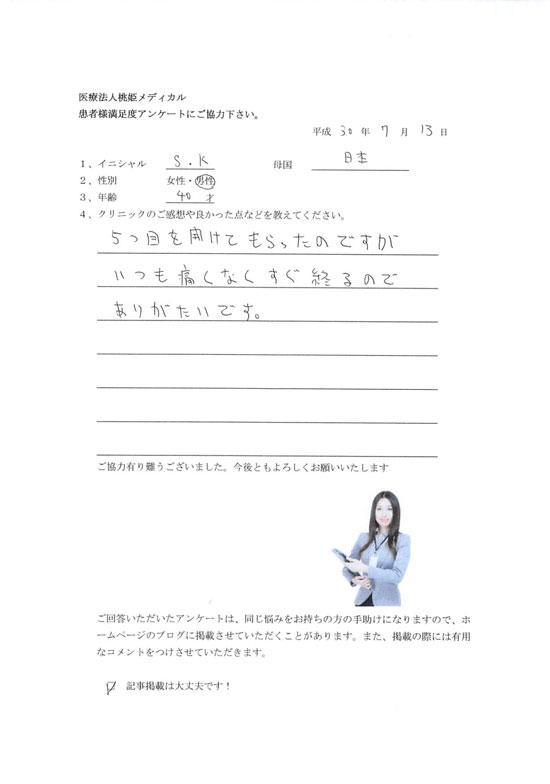 医療法人桃姫メディカル
患者様満足度アンケートにご協力下さい。
平成 30 年 7 月 13 日
1、イニシャル S.K 母国 日本
2、性別 女性・男性
3、年齢 40 才
4、クリニックのご感想や良かった点などを教えてください。
5つ目を開けてもらったのですが
いつも痛くなくすぐ終るので
ありがたいです。
ご協力有り難うございました。今後ともよろしくお願いいたします
ご回答いただいたアンケートは、同じ悩みをお持ちの方の手助けになりますので、ホ
ームページのブログに掲載させていただくことがあります。また、掲載の際には有用
なコメントをつけさせていただきます。
記事掲載は大丈夫です！